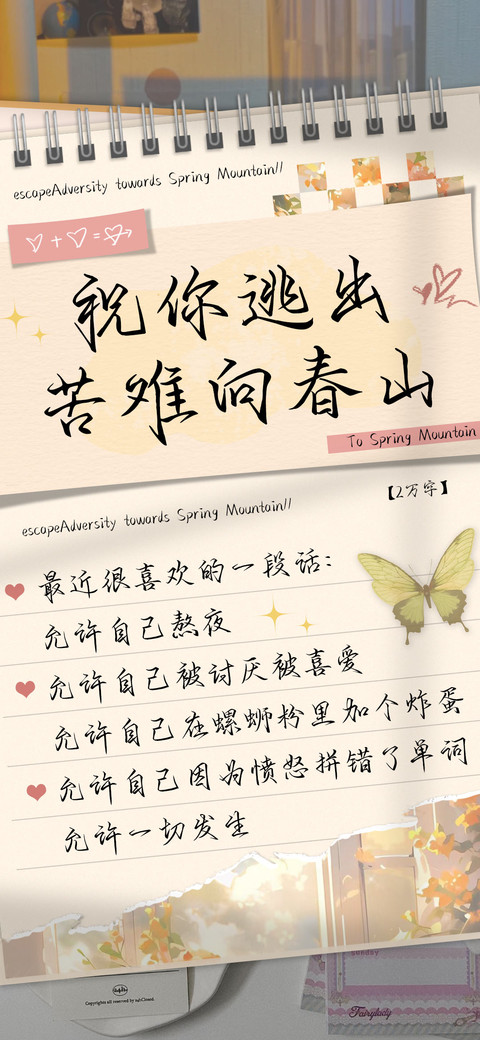 escapeAdversity towards Spring Mountain//
祝你逃出
苦难向春山
To Spring Mountain
【2万字】
escapeAdversity towards Spring Mountain//
最近很喜欢的一段话：
允许自己熬夜
允许自己被讨厌被喜爱
允许自己在螺蛳粉里加个炸蛋
允许自己因为愤怒拼错了单词
允许一切发生
sunday
Copyrights all reserved by
Fairylady